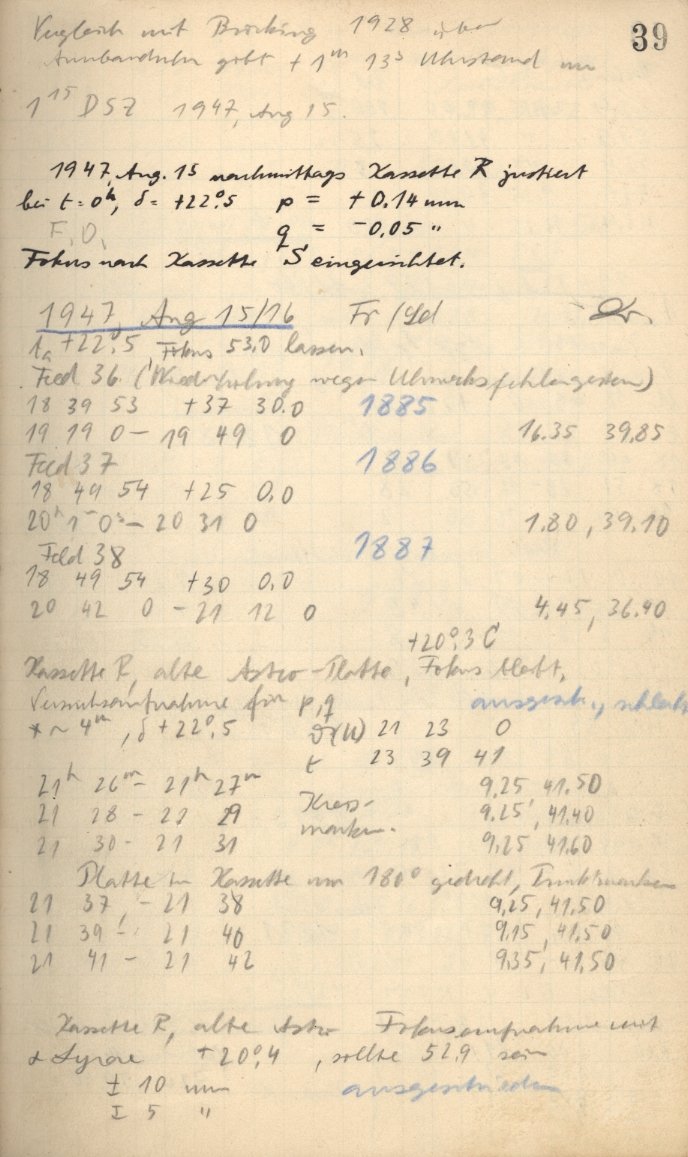 39
Vergleich mit Brocking 1928 über
Armbanduhr gibt + 1m 13s Uhrstand um
1 15 DSZ 1947, Aug 15.
1947, Aug. 15 nachmittags Kassette R justiert
bei t = 0h, δ = +22°,5 p = + 0,14 mm
F, O, q = - 0,05 "
Fokus nach Kassette S eingerichtet.
1947, Aug 15/16 Fr / Ld
+22°,5, Fokus 53,0 lassen.
Feld 36 (Wiederholung wegen
18 39 53 +37 30.0 1885
19 19 0 - 19 49 0 16.35 39,85
Feld 37 1886
18 49 54 +25 0,0
20h 1m 0s - 20 31 0 1.80, 39.10
Feld 38 1887
18 49 54 +30 0,0
20 42 0 - 21 12 0 4,45, 36.40
+20°,3 C
Kassette R, alte Astro-Platte, Fokus bleibt.
Versuchsaufnahme für p, q
* ~ 4m, δ +22°,5 (W) 21 23 0
t 23 39 41
21h 26m - 21h 27m 9,25 41.50
21 28 - 21 29 Kreis- 9,25, 41,40
21 30 - 21 31 marken. 9,25 41,60
Platte in Kassette um 180° gedreht,
21 37 - 21 38 9,25, 41,50
21 39 - 21 40 9,15, 41,50
21 41 - 21 42 9,35, 41,50
Kassette R, alte Astro Fokusaufnahme mit
α Lyrae +20°,4, sollte 52,9 sein
± 10 mm ausgeschieden
± 5 "